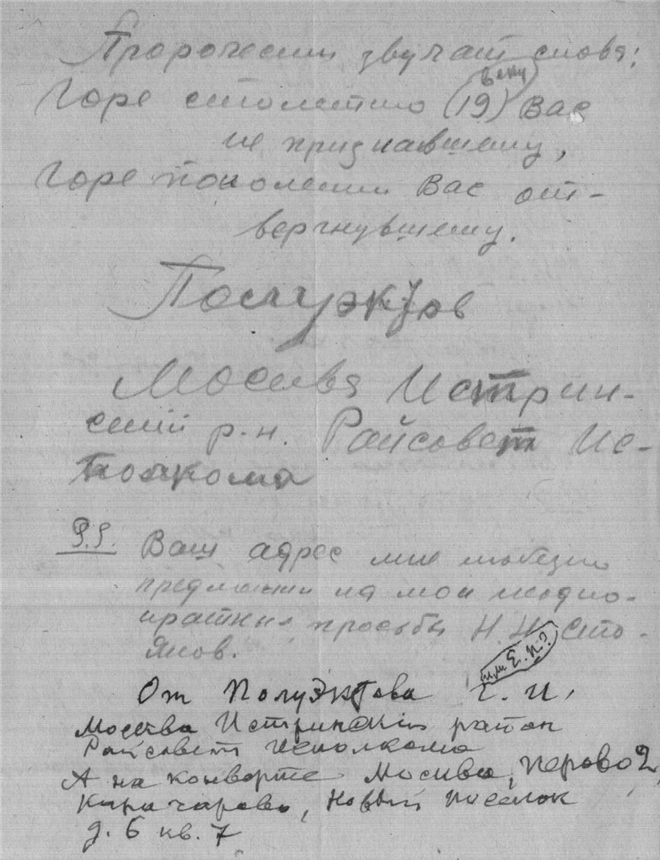 Пророчески звучат слова:
веку
Горе столетию (19) Вас
не признавшему,
Горе поколению Вас от-
вергнувшему.
Полуэктов
Москва Истрин-
ский р-н. Райсовет Ис-
полкома
P.S. Ваш адрес мне любезно
предложил на мои неодно-
кратные просьбы Н.И. Сто-
янов.
или Е.И.?
От Полуэктова Г. И.
Москва Истринский район
Райсовет исполкома
А на конверте Москва, Перово 2,
Карачарово, Новый поселок
д. 6 кв. 7